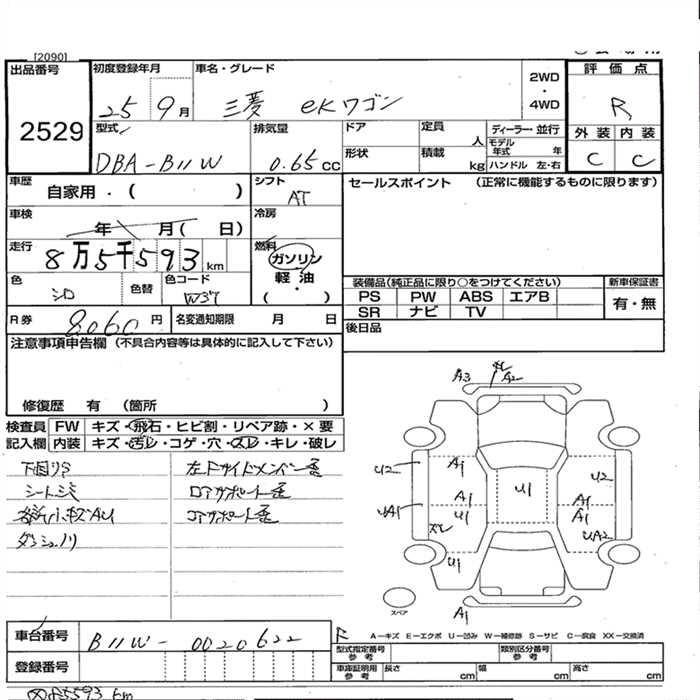 [2090]
出品番号 2529
初度登録年月 25 9月
車名・グレード 三菱 eKワゴン
2WD・4WD
評価点 R
外装 内装
C C
型式 DBA-B11W
排気量 0.65 CC
ドア
定員 人
ディーラー・並行
モデル年式 年
形状
積載 kg
ハンドル 左・右
車歴 自家用・( )
シフト AT
セールスポイント (正常に機能するものに限ります)
車検 年 月( 日)
冷房
走行 8万5千593km
燃料 ガソリン
軽・油
( )
色 シロ
色替
色コード W37
装備品(純正品に限り○をつけてください)
新車保証書
PS PW ABS エアB
SR ナビ TV
有・無
R券 8060円
名変通知期限 月 日
後日品
注意事項申告欄 (不具合内容等は具体的に記入して下さい)
修復歴 有 (箇所 )
検査員 FW キズ・飛石・ヒビ割・リペア跡・×要
記入欄 内装 キズ・汚レ・コゲ・穴・スレ・キレ・破レ
下回りサ
左Fサイドメンバー歪
ロアサポート歪
コアサポート歪
各所小キズAU
A3 A2
U2 A1 U2
U1
A1 A1
UA1 U1 A1
UA2
U1
A1
スペア
R
A-キズ E-エクボ U-凹み W-補修跡 S-サビ C-腐食 XX-交換済
車台番号 B11W-0020622
型式指定番号 参考
類別区分番号 参考
登録番号
車庫証明用 参考
長さ cm
幅 cm
高さ cm
85593km